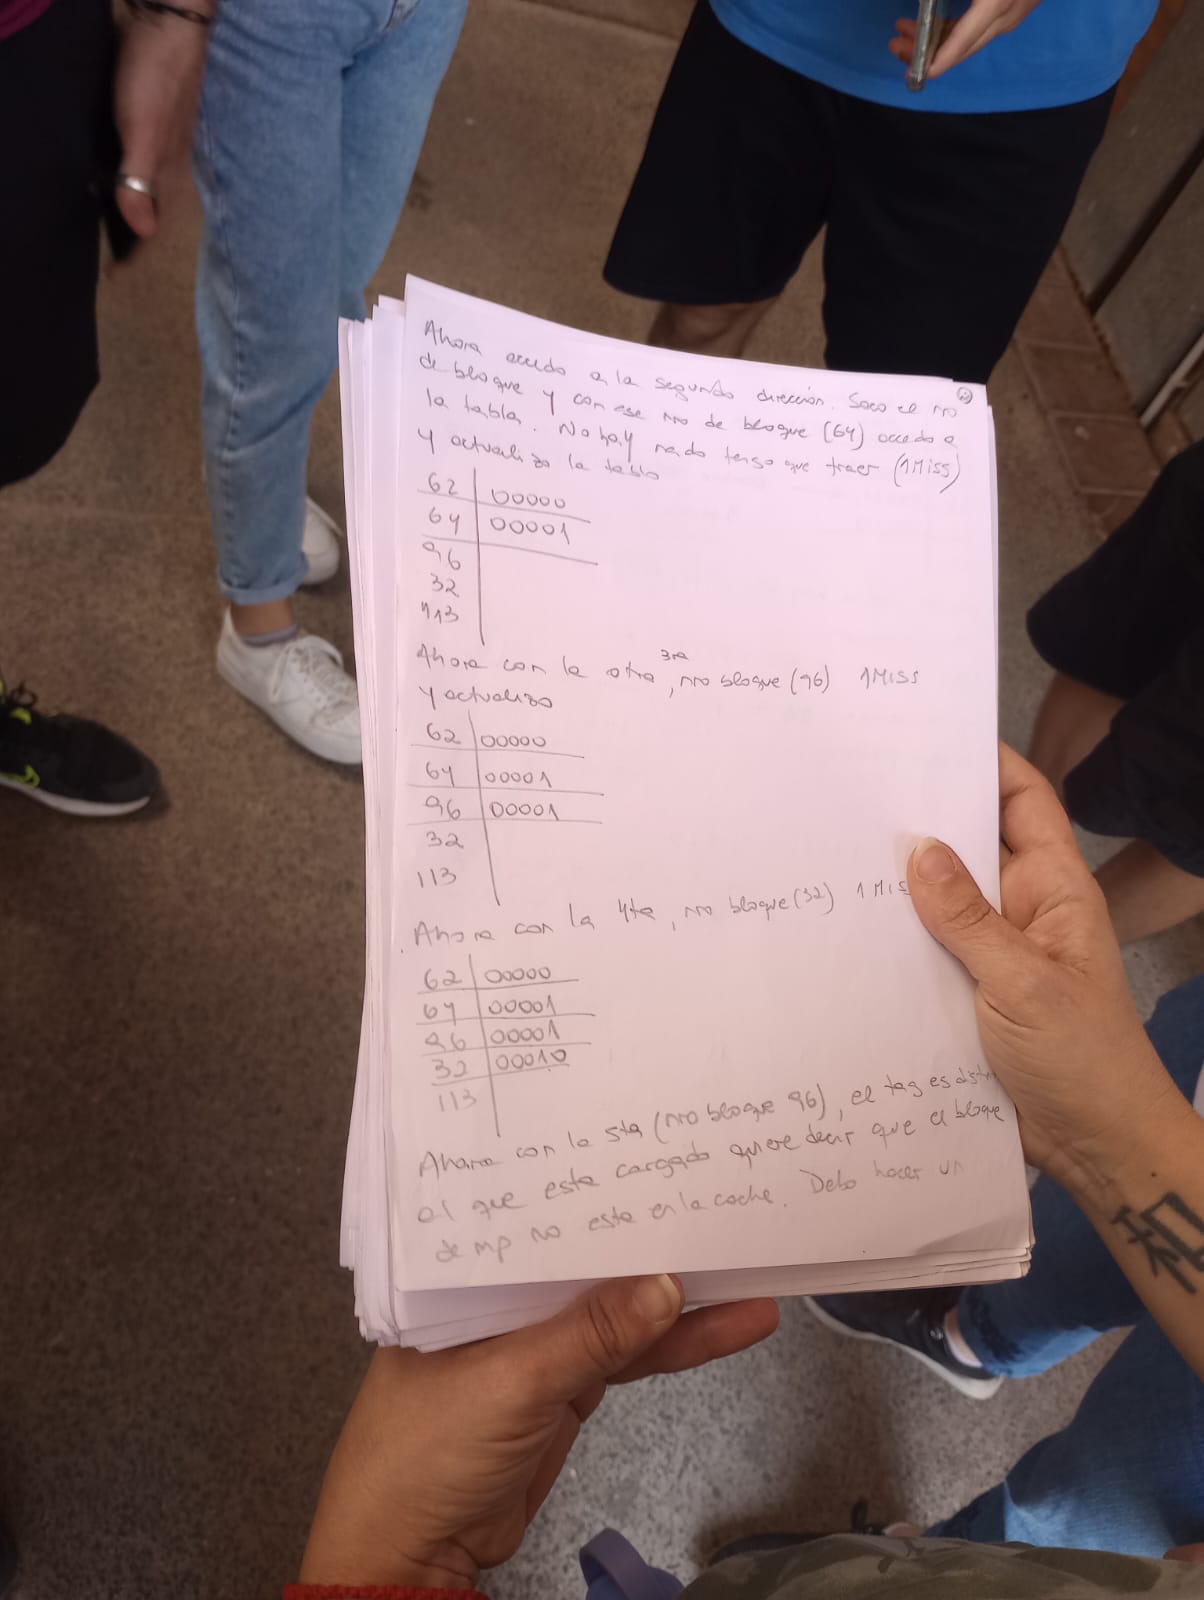 2
Ahora accedo a la segunda dirección. Saco el no
de bloque y con ese no de bloque (64) accedo a
la tabla. No hay nada tengo que traer (1Miss)
y actualizo la tabla
62 00000
64 00001
96
32
113
Ahora con la otra 3ra, no bloque (96) 1 Miss
y actualizo
62 00000
64 00001
96 00001
32
113
. Ahora con la 4ta, no bloque (32) 1 Mis
62 00000
64 00001
96 00001
32 00010
113
Ahora con la 5ta (no bloque 96), el tag es distin
al que esta cargado quiere decir que el bloque
de mp no esta en la cache. Debo hacer un